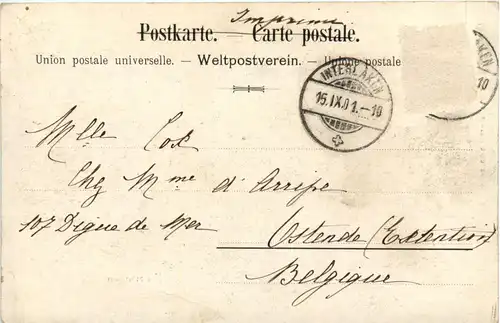 Imprimé
Postkarte. — Carte postale.
Union postale universelle. — Weltpostverein. — Unione postale
INTERLAKEN
15.IX.01.–10
AKEN
10
Mlle Cox
Chg Mme d'Arripe
107 Digue de Mer
Ostende (Extention)
Belgique